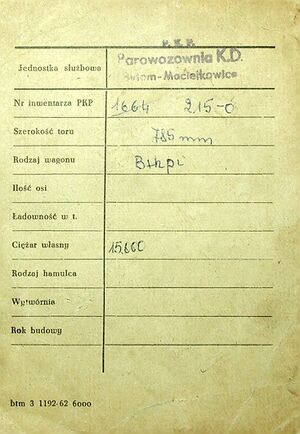 P. K. P.
Jednostka służbowa
Parowozownia K.D.
Bytom-Maciejkowice
Nr inwentarza PKP 1664 215-0
Szerokość toru 785 mm
Rodzaj wagonu
Ilość osi
Ładowność w t.
Ciężar własny 15.660
Rodzaj hamulca
Wytwórnia
Rok budowy
btm 3 1192-62 6000